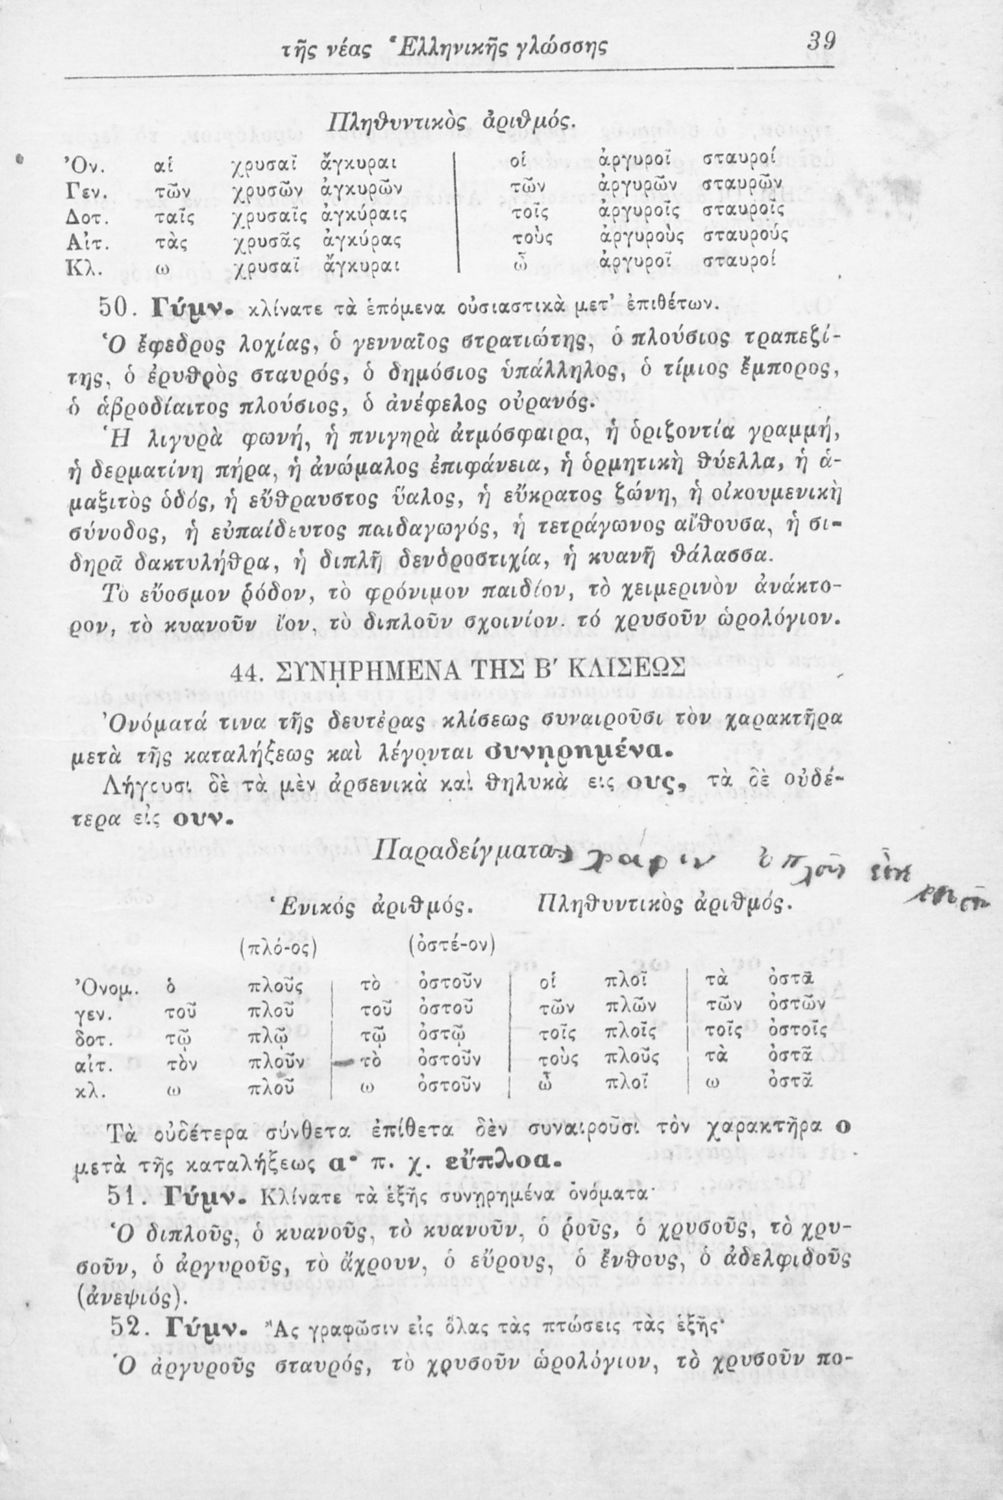 τῆς νέας Ἑλληνικῆς γλώσσης 39
Πληθυντικὸς ἀριθμός.
Ὀν. αἱ χρυσαῖ ἄγκυραι οἱ ἀργυροῖ σταυροί
Γεν. τῶν χρυσῶν ἀγκυρῶν τῶν ἀργυρῶν σταυρῶν
Δοτ. ταῖς χρυσαῖς ἀγκύραις τοῖς ἀργυροῖς σταυροῖς
Αἰτ. τὰς χρυσᾶς ἀγκύρας τοὺς ἀργυροὺς σταυρούς
Κλ. ω χρυσαῖ ἄγκυραι ὦ ἀργυροῖ σταυροί
50. Γύμν. κλίνατε τὰ ἑπόμενα οὐσιαστικὰ μετ' ἐπιθέτων.
Ὁ ἔφεδρος λοχίας, ὁ γενναῖος στρατιώτης, ὁ πλούσιος τραπεζί-
της, ὁ ἐρυθρὸς σταυρός, ὁ δημόσιος ὑπάλληλος, ὁ τίμιος ἔμπορος,
ὁ ἁβροδίαιτος πλούσιος, ὁ ἀνέφελος οὐρανός.
Ἡ λιγυρὰ φωνή, ἡ πνιγηρὰ ἀτμόσφαιρα, ἡ ὁριζοντία γραμμή,
ἡ δερματίνη πήρα, ἡ ἀνώμαλος ἐπιφάνεια, ἡ ὁρμητικὴ θύελλα, ἡ ἁ-
μαξιτὸς ὁδός, ἡ εὔθραυστος ὕαλος, ἡ εὔκρατος ζώνη, ἡ οἰκουμενικὴ
σύνοδος, ἡ εὐπαίδευτος παιδαγωγός, ἡ τετράγωνος αἴθουσα, ἡ σι-
δηρᾶ δακτυλήθρα, ἡ διπλῆ δενδροστιχία, ἡ κυανῆ θάλασσα.
Τὸ εὔοσμον ῥόδον, τὸ φρόνιμον παιδίον, τὸ χειμερινὸν ἀνάκτο-
ρον, τὸ κυανοῦν ἴον, τὸ διπλοῦν σχοινίον. τό χρυσοῦν ὡρολόγιον.
44. ΣΥΝῌΡΗΜΕΝΑ ΤΗΣ Β' ΚΛΙΣΕΩΣ
Ὀνόματά τινα τῆς δευτέρας κλίσεως συναιροῦσι τὸν χαρακτῆρα
μετὰ τῆς καταλήξεως καὶ λέγονται συνῃρημένα.
Λήγουσι δὲ τὰ μὲν ἀρσενικὰ καὶ θηλυκὰ εἰς ους, τὰ δὲ οὐδέ-
τερα εἰς ουν.
Παραδείγματα χαριν
Ἑνικός ἀριθμός. Πληθυντικὸς ἀριθμός.
(πλό-ος) (ὀστέ-ον)
Ὀνομ. ὁ πλοῦς τὸ ὀστοῦν οἱ πλοῖ τὰ ὀστᾶ
γεν. τοῦ πλοῦ τοῦ ὀστοῦ τῶν πλῶν τῶν ὀστῶν
δοτ. τῷ πλῷ τῷ ὀστῷ τοῖς πλοῖς τοῖς ὀστοῖς
αἰτ. τὸν πλοῦν τὸ ὀστοῦν τοὺς πλοῦς τὰ ὀστᾶ
κλ. ω πλοῦ ω ὀστοῦν ὦ πλοῖ ω ὀστᾶ
Τὰ οὐδέτερα σύνθετα ἐπίθετα δὲν συναιροῦσι τὸν χαρακτῆρα ο
μετὰ τῆς καταλήξεως α· π. χ. εὔπλοα.
51. Γύμν. Κλίνατε τὰ ἑξῆς συνῃρημένα ὀνόματα·
Ὁ διπλοῦς, ὁ κυανοῦς, τὸ κυανοῦν, ὁ ῥοῦς, ὁ χρυσοῦς, τὸ χρυ-
σοῦν, ὁ ἀργυροῦς, τὸ ἄχρουν, ὁ εὔρους, ὁ ἔνθους, ὁ ἀδελφιδοῦς
(ἀνεψιός).
52. Γύμν. Ἂς γραφῶσιν εἰς ὅλας τὰς πτώσεις τὰς ἑξῆς·
Ὁ ἀργυροῦς σταυρός, τὸ χρυσοῦν ὡρολόγιον, τὸ χρυσοῦν πο-